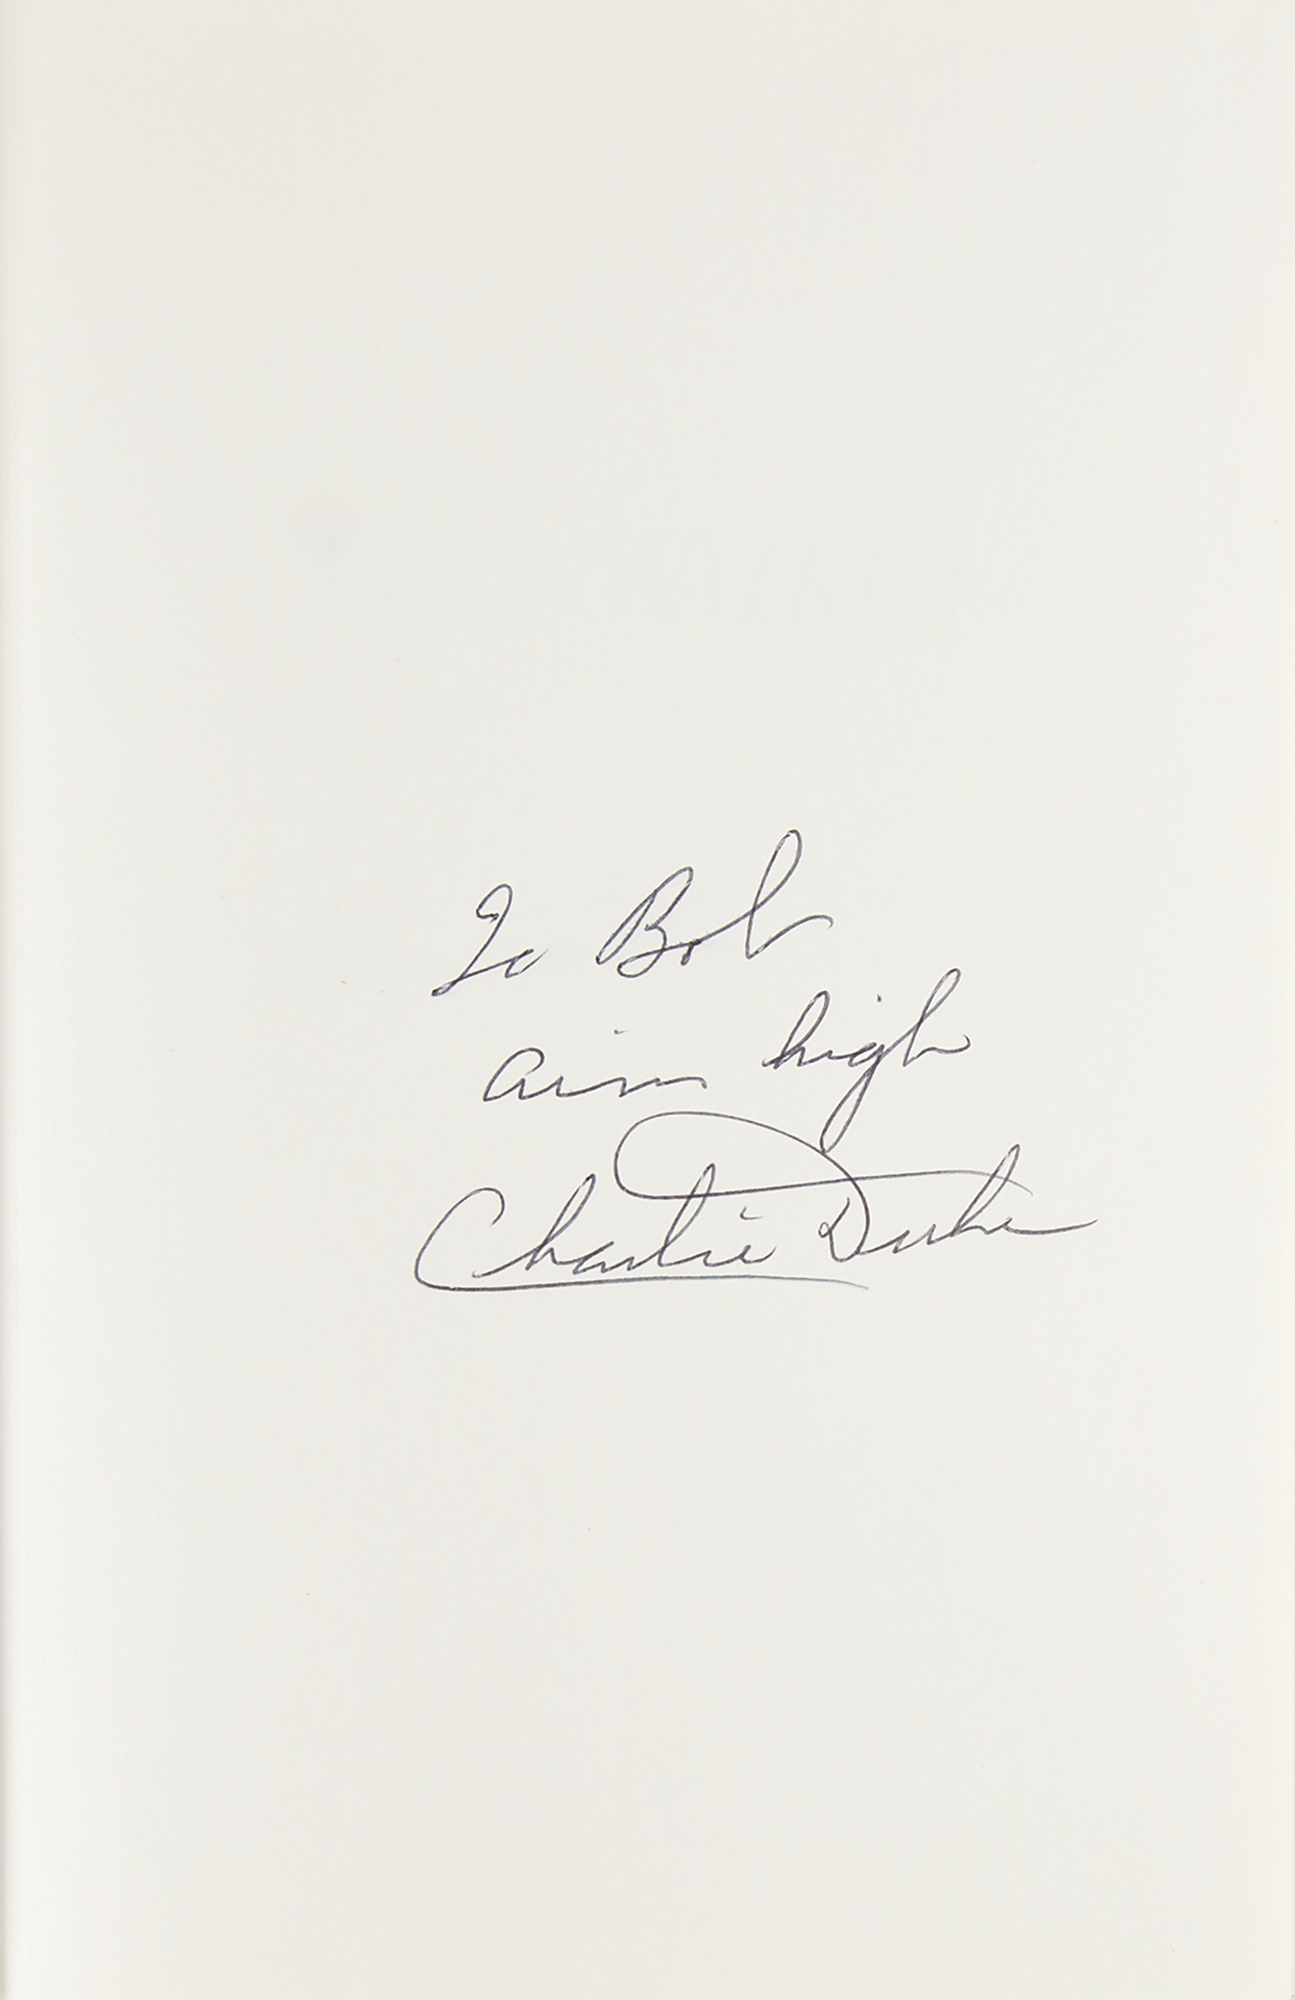 To Bob
aim high
Charlie Duke